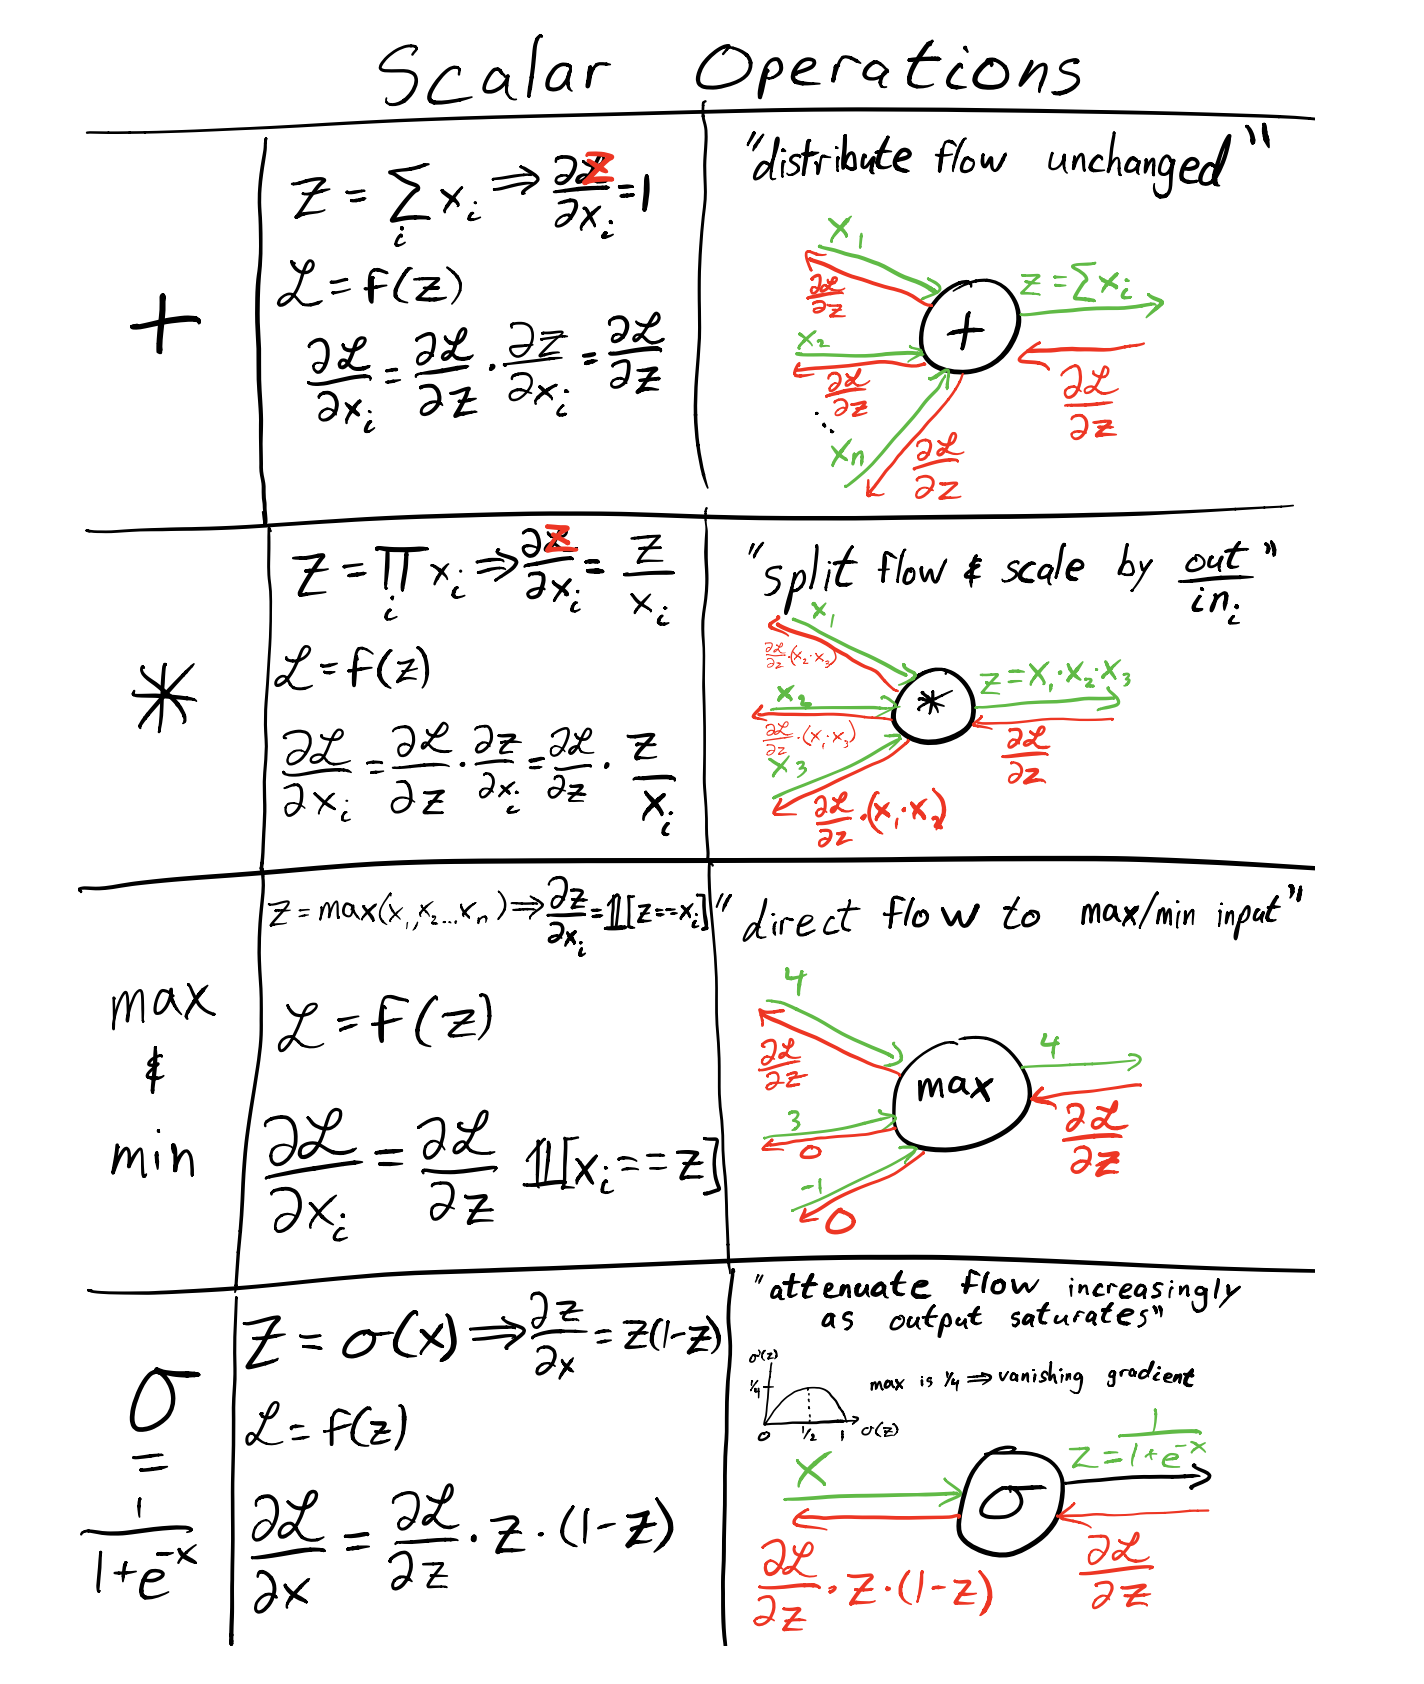 Scalar Operations
+
z = ∑_i x_i ⇒ ∂z/∂x_i = 1
ℒ = f(z)
∂ℒ/∂x_i = ∂ℒ/∂z · ∂z/∂x_i = ∂ℒ/∂z
"distribute flow unchanged"
x_1
∂ℒ/∂z
x_2
∂ℒ/∂z
⋱
x_n
∂ℒ/∂z
+
z = ∑x_i
∂ℒ/∂z
*
z = ∏_i x_i ⇒ ∂z/∂x_i = z/x_i
ℒ = f(z)
∂ℒ/∂x_i = ∂ℒ/∂z · ∂z/∂x_i = ∂ℒ/∂z · z/x_i
"split flow & scale by out/in_i"
x_1
∂ℒ/∂z · (x_2 · x_3)
x_2
∂ℒ/∂z · (x_1 · x_3)
x_3
∂ℒ/∂z · (x_1 · x_2)
*
z = x_1 · x_2 · x_3
∂ℒ/∂z
max
&
min
z = max(x_1, x_2 ... x_n) ⇒ ∂z/∂x_i = 𝟙[z == x_i]
ℒ = f(z)
∂ℒ/∂x_i = ∂ℒ/∂z 𝟙[x_i == z]
"direct flow to max/min input"
4
∂ℒ/∂z
3
0
-1
0
max
4
∂ℒ/∂z
σ
=
1/(1+e^-x)
z = σ(x) ⇒ ∂z/∂x = z(1-z)
ℒ = f(z)
∂ℒ/∂x = ∂ℒ/∂z · z · (1-z)
"attenuate flow increasingly
as output saturates"
σ'(z)
1/4
0
1/2
1
σ(z)
max is 1/4 ⇒ vanishing gradient
x
∂ℒ/∂z · z · (1-z)
σ
z = 1/(1+e^-x)
∂ℒ/∂z